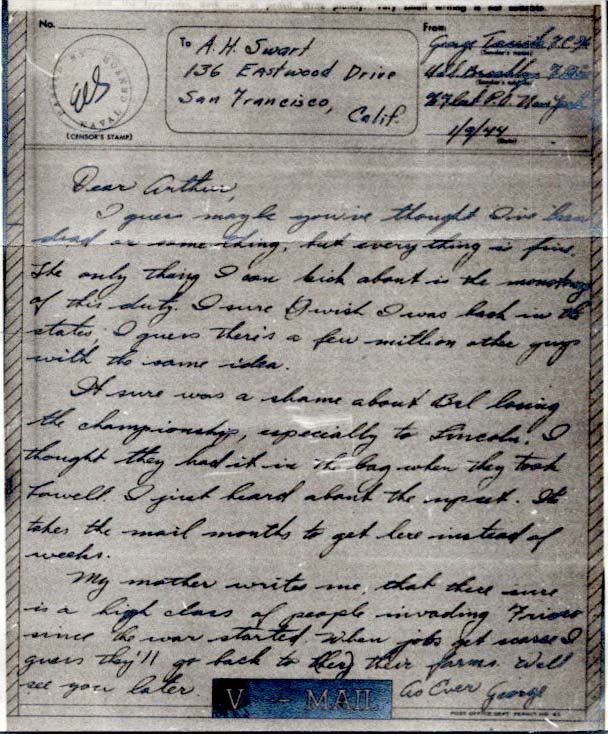 very small writing is not suitable.
No.
PASSED BY
NAVAL
(CENSOR'S STAMP)
To A. H. Swart
136 Eastwood Drive
San Francisco,
Calif.
From
George
(Sender's name)
U.S.S. Brooklyn
(Sender's address)
℅ Fleet P.O. New York
1/9/44
(Date)
Dear Arthur,
I guess maybe you've thought I've been
dead or something, but everything is fine.
The only thing I can kick about is the monotony
of this duty. I sure wish I was back in the
states, I guess there's a few million other guys
with the same idea.
It sure was a shame about Bal losing
the championship, especially to Lincoln. I
thought they had it in the bag when they took
Lowell I just heard about the upset. It
takes the mail months to get here instead of
weeks.
My mother writes me, that there sure
is a high class of people invading Frisco
since the war started. When jobs get scarce I
guess they'll go back to their farms. Well
see you later.
As Ever George
V - MAIL
POST OFFICE DEPT. PERMIT NO.